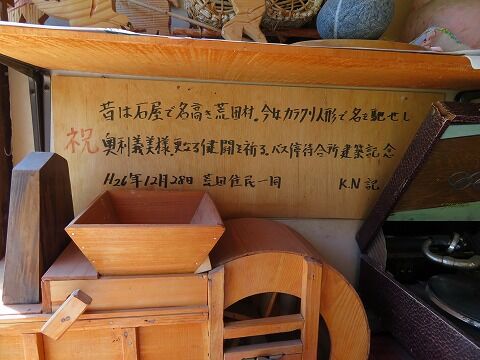 昔は石屋で名高き荒田村。今はカラクリ人形で名を馳せし
祝 奥利義美様、更なる健闘を祈る。バス停待合所建築記念
H26年12月28日 荒田住民一同 K.N記